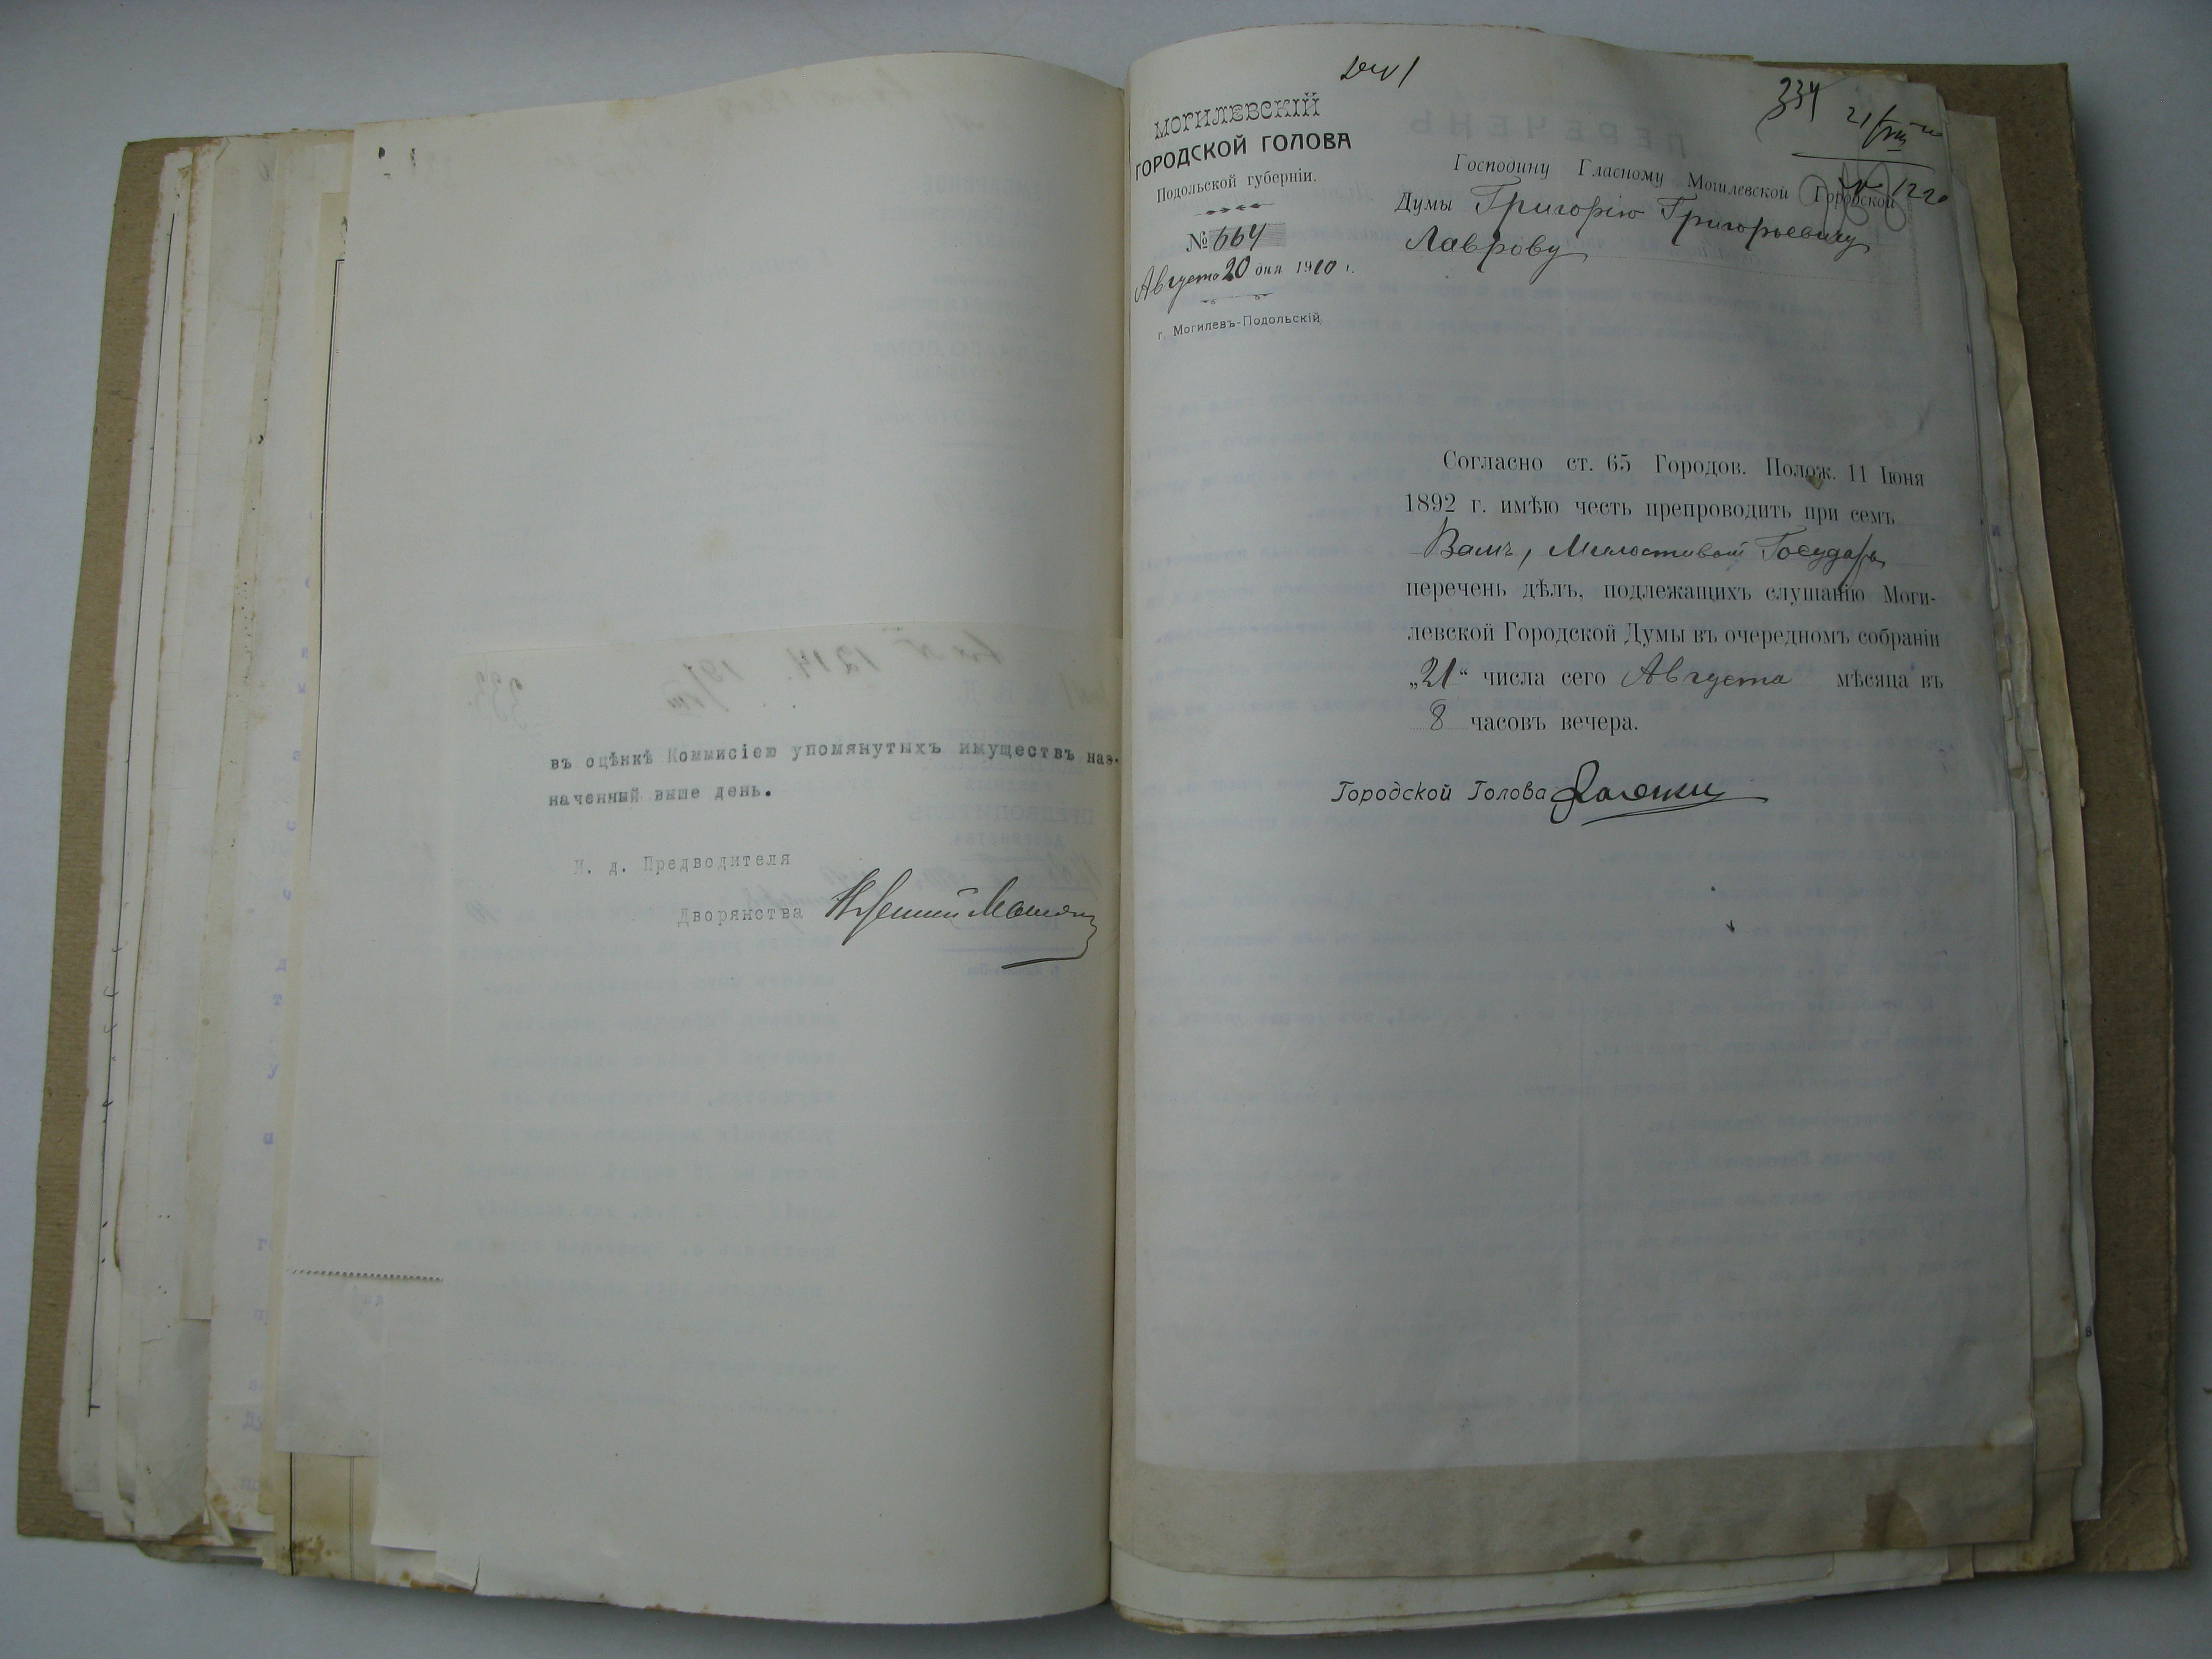 въ оцѣнкѣ Коммисіею упомянутыхъ имуществъ наз-
наченный выше день.
И. д. Предводителя
Дворянства
334
21/VIII
№ 1220
МОГИЛЕВСКІЙ
ГОРОДСКОЙ ГОЛОВА
Подольской губерніи.
№ 664
Августа 20 дня 1910 г.
г. Могилевъ-Подольскій
Господину Гласному Могилевской Городской
Думы Григорію Григорьевичу
Лаврову
Согласно ст. 65 Городов. Полож. 11 Іюня
1892 г. имѣю честь препроводить при семъ
Вамъ, Милостивый Государь
перечень дѣлъ, подлежащихъ слушанію Моги-
левской Городской Думы въ очередномъ собраніи
„21“ числа сего Августа мѣсяца въ
8 часовъ вечера.
Городской Голова